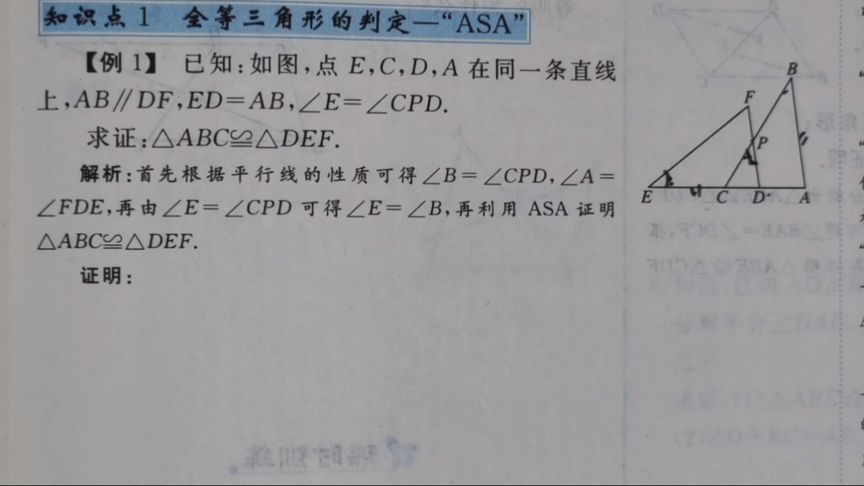 知识点1 全等三角形的判定—“ASA”
【例1】 已知:如图,点 E,C,D,A 在同一条直线
上,AB∥DF,ED=AB,∠E=∠CPD.
求证:△ABC≌△DEF.
解析:首先根据平行线的性质可得∠B=∠CPD,∠A=
∠FDE,再由∠E=∠CPD 可得∠E=∠B,再利用 ASA 证明
△ABC≌△DEF.
证明:
B
F
P
E C D A